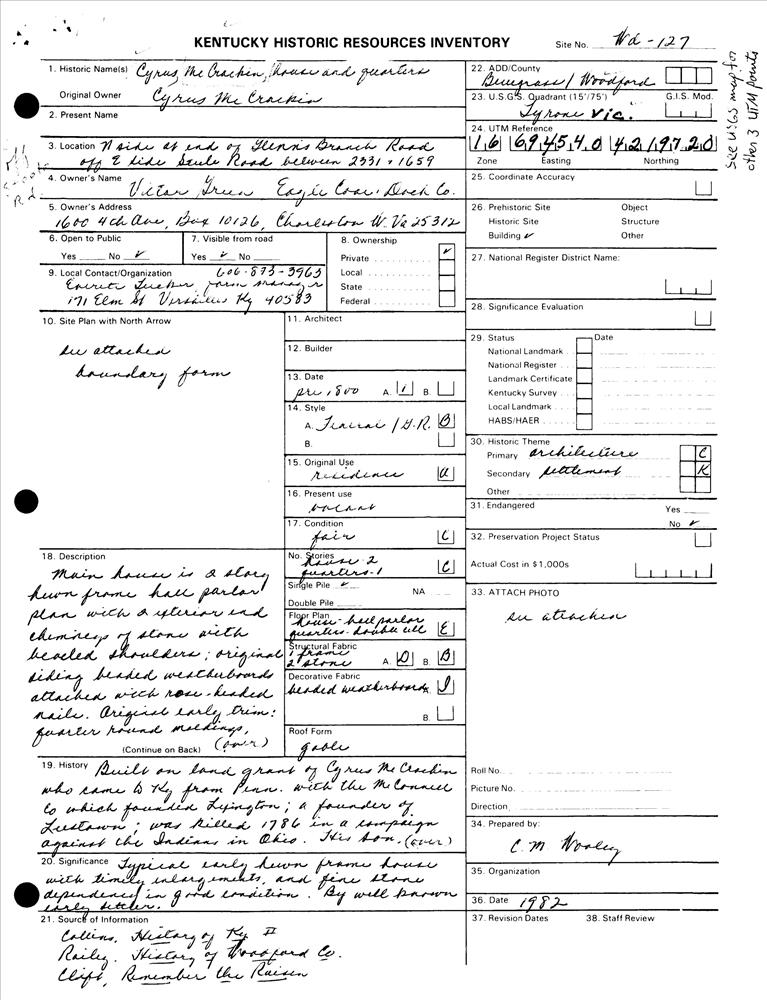 KENTUCKY HISTORIC RESOURCES INVENTORY
Site No. Wd-127
1. Historic Name(s) Cyrus McCrackin, house and quarters
Original Owner Cyrus McCrackin
2. Present Name
3. Location N side at end of Glenns Branch Road
off E side Scule Road between 2331 + 1659
4. Owner's Name Victor Green Eagle Coal & Dock Co.
5. Owner's Address
1600 4th Ave, Box 10126, Charleston W. Va 25312
6. Open to Public
Yes No ✓
7. Visible from road
Yes ✓ No
8. Ownership
Private ✓
Local
State
Federal
9. Local Contact/Organization 606-873-3963
Everett Tucker, farm manager
171 Elm St Versailles Ky 40583
10. Site Plan with North Arrow
see attached
boundary form
11. Architect
12. Builder
13. Date
pre 1800 A. 1 B.
14. Style
A. Federal / G.R. B
B.
15. Original Use
residence A
16. Present use
vacant
17. Condition
fair C
No. Stories
house-2
quarters-1 C
Single Pile ✓ NA
Double Pile
Floor Plan
house-hall parlor
quarters-double cell E
Structural Fabric
1 frame
2 stone A. D B. B
Decorative Fabric
beaded weatherboards I
B.
Roof Form
gable
18. Description
Main house is 2 story
hewn frame hall parlor
plan with 2 exterior end
chimneys of stone with
beveled shoulders; original
siding beaded weatherboards
attached with rose-headed
nails. Original early trim:
quarter round moldings,
(Continue on Back) (over)
19. History Built on land grant of Cyrus McCrackin
who came to Ky from Penn. with the McConnell
Co which founded Lexington; a founder of
Leestown; was killed 1786 in a campaign
against the Indians in Ohio. His son. (over)
20. Significance Typical early hewn frame house
with timely enlargements, and fine stone
dependency in good condition. By well known
early settler.
21. Source of Information
Collins, History of Ky II
Railey, History of Woodford Co.
Clift, Remember the Raisin
22. ADD/County
Bluegrass / Woodford
23. U.S.G.S. Quadrant (15'/75') G.I.S. Mod.
Tyrone Vic.
24. UTM Reference
16 694540 4219720
Zone Easting Northing
see USGS map for
other 3 UTM points
25. Coordinate Accuracy
26. Prehistoric Site Object
Historic Site Structure
Building ✓ Other
27. National Register District Name:
28. Significance Evaluation
29. Status Date
National Landmark
National Register
Landmark Certificate
Kentucky Survey
Local Landmark
HABS/HAER
30. Historic Theme
Primary architecture C
Secondary settlement K
Other
31. Endangered Yes
No ✓
32. Preservation Project Status
Actual Cost in $1,000s
33. ATTACH PHOTO
see attached
Roll No.
Picture No.
Direction
34. Prepared by:
C. M. Wooley
35. Organization
36. Date 1982
37. Revision Dates 38. Staff Review